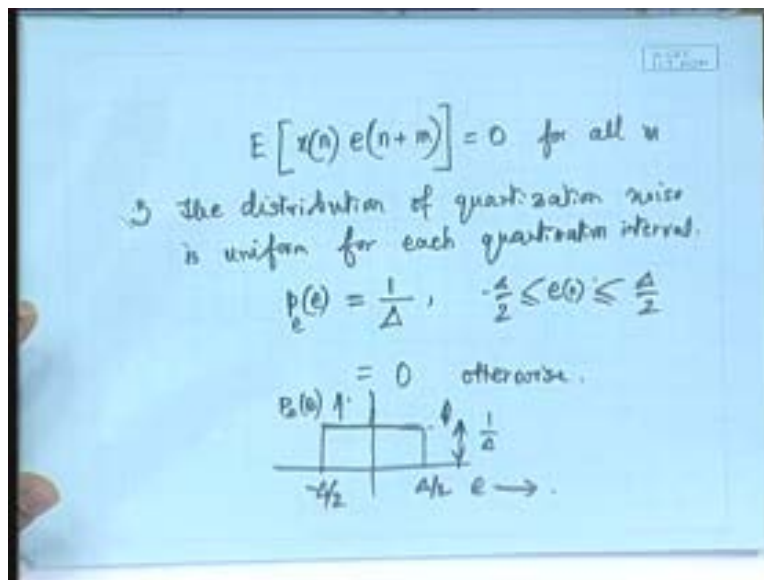 E [x(n) e(n+m)] = 0 for all m
3 The distribution of quantization noise
is uniform for each quantization interval.
p_e(e) = 1/Δ, -Δ/2 ≤ e(n) ≤ Δ/2
= 0 otherwise.
P_e(e)
1/Δ
-Δ/2 Δ/2 e →.